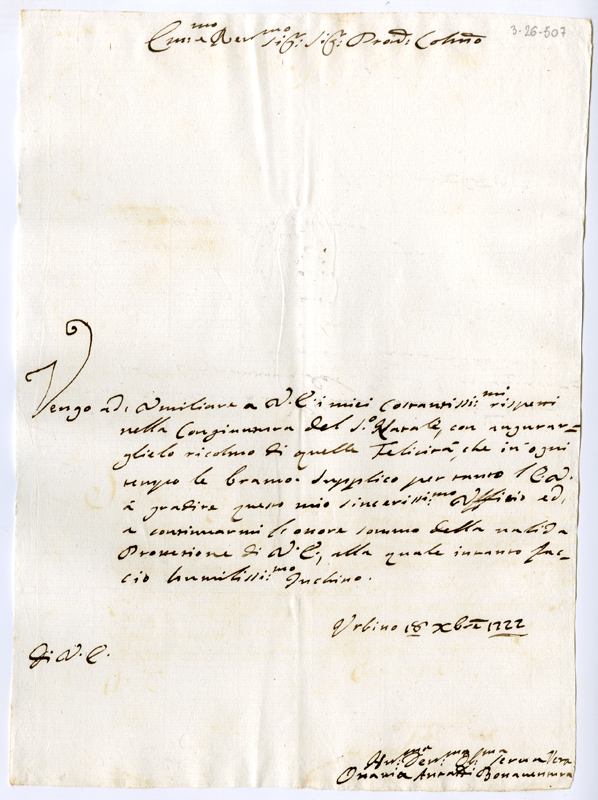 3-26-507
Em:mo e Reu:mo Sig:r Sig:r Pron: Colmo
Vengo ad umiliare a V. E. i miei Costantissi:mi rispetti
nella Congiuntura del S.o Natale, con augurar-
glielo ricolmo di quelle Felicità, che in ogni
tempo le bramo. Supplico per tanto l'E. V.
à gradire questo mio sincerissi:mo Ufficio ed
a continuarmi l'onore sommo della valida
Protezione di V. E., alla quale intanto fac-
cio humilissi:mo Inchino.
Urbino 18 Xbre 1722
Di V. E.
Hu:ma Deu:ma Ob:ma serua Vera
Bonauentura